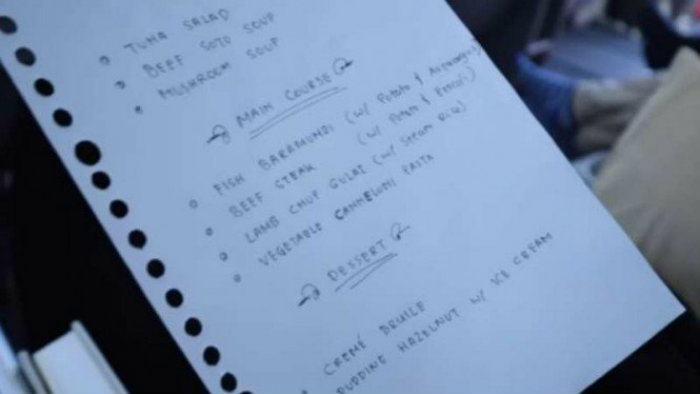 TUNA SALAD
BEEF SOTO SOUP
MUSHROOM SOUP
MAIN COURSE
FISH BARAMUNDI (W/ Potato & Asparagus)
BEEF STEAK (W/ Potato & Brocoli)
LAMB CHOP GULAI (W/ Steam Rice)
VEGETABLE CANNELONI PASTA
DESSERT
CREME BRULLE
PUDDING HAZELNUT W/ ICE CREAM